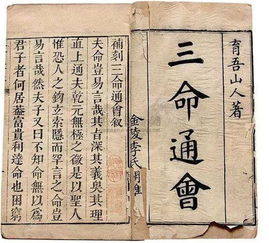 育吾山人著
三命通會
金陵李氏
補刻三命通會敘
夫命豈易言哉其旨深其義奧其理
直上通夫乾元無極之是以聖人
惟恐人之鈎玄索隱而罕言之命豈
易言哉然夫子又曰不知命無以爲
君子者何居蓋富貴利達命也困窮